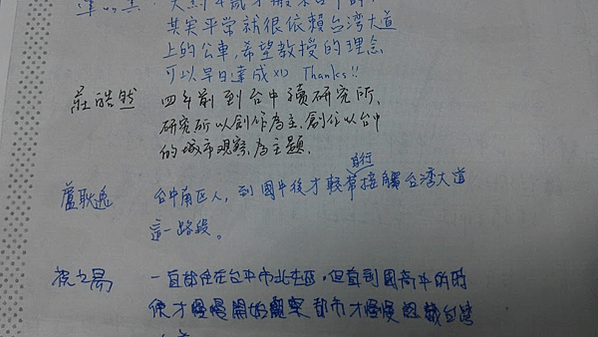 其實平常就很依賴台湾大道
上的公車,希望教授的理念
可以早日達成XD Thanks!!
莊皓然 四年前到台中讀研究所,
研究所以創作為主,創作以台中
的城市观察為主題.
盧耿逸 台中南區人,到國中後才較常自行接觸台湾大道
這一路段。
一直都住在台中市北屯區,但直到國高中的時
候才慢慢開始觀察都市才慢慢認識台灣